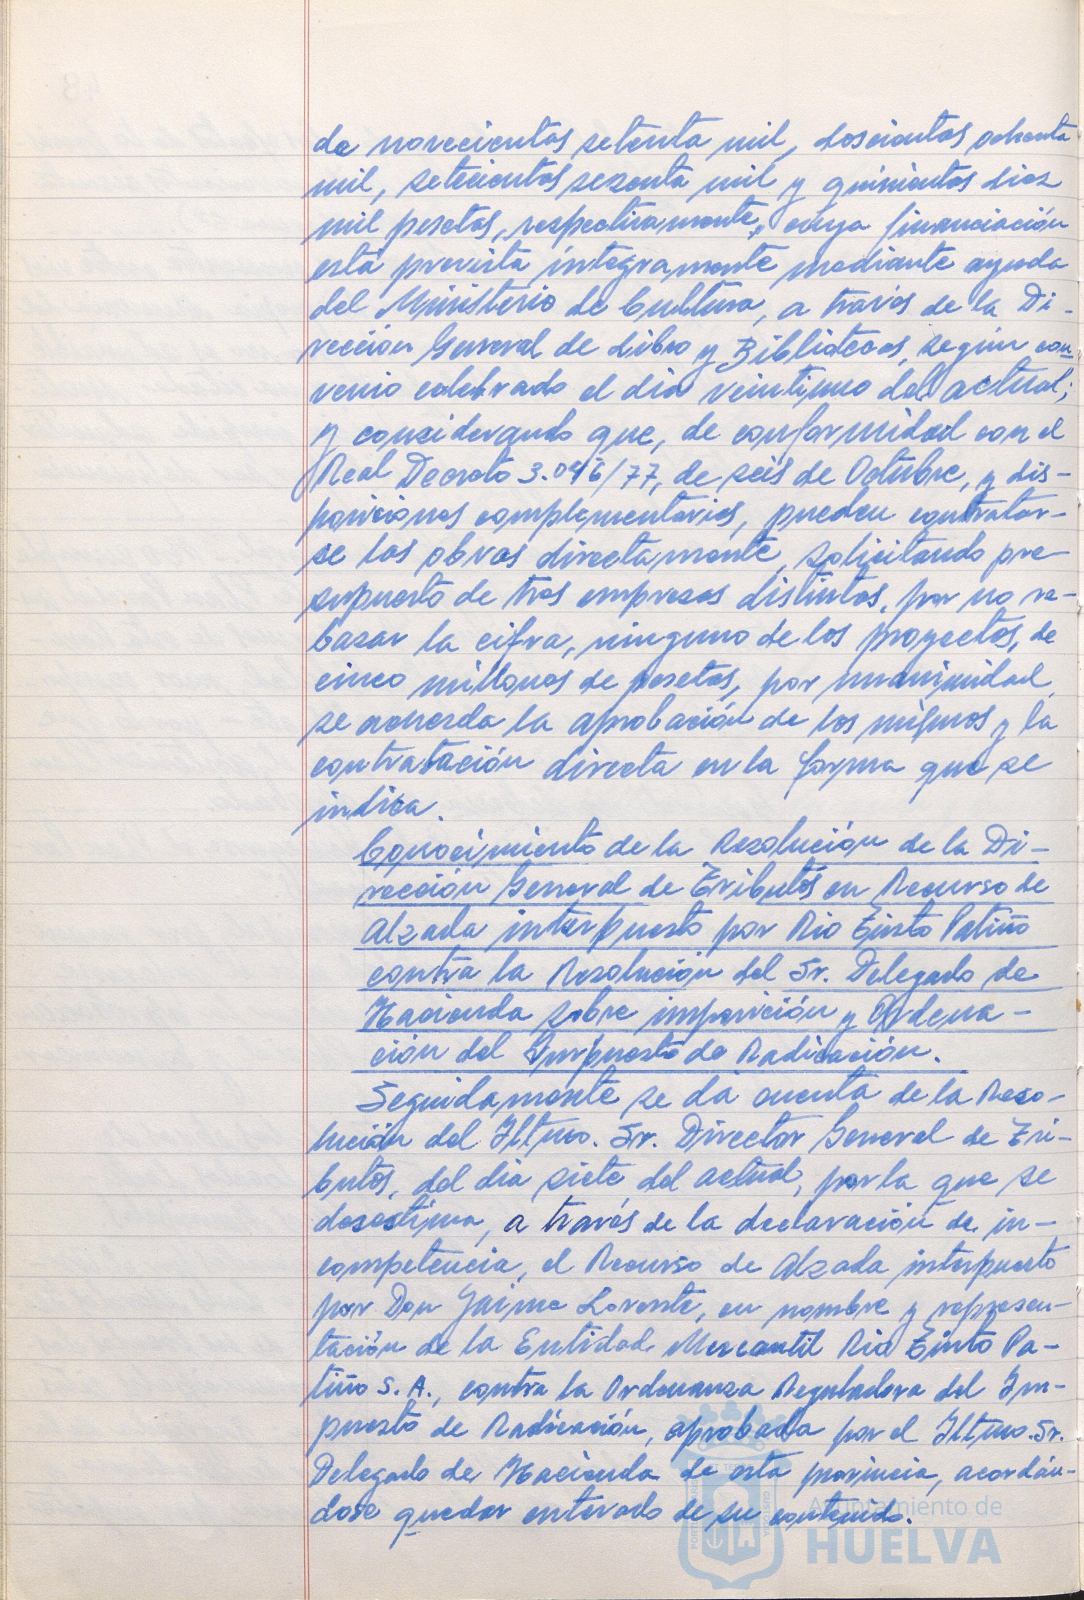 de novecientas setenta mil, doscientas ochenta
mil, setecientas sesenta mil y quinientas diez
mil pesetas, respectivamente, cuya financiación
está prevista íntegramente mediante ayuda
del Ministerio de Cultura, a través de la Di-
rección General de Libro y Bibliotecas, según con-
venio celebrado el día veintiuno del actual;
y considerando que, de conformidad con el
Real Decreto 3.046/77, de seis de Octubre, y dis-
posiciones complementarias, pueden contratar-
se las obras directamente, solicitando pre-
supuesto de tres empresas distintas, por no re-
basar la cifra, ninguno de los proyectos, de
cinco millones de pesetas, por unanimidad,
se acuerda la aprobación de los mismos y la
contratación directa en la forma que se
indica.
Conocimiento de la Resolución de la Di-
rección General de Tributos en Recurso de
Alzada interpuesto por Rio Tinto Patiño
contra la Resolución del Sr. Delegado de
Hacienda sobre imposición y Ordena-
ción del Impuesto de Radicación.
Seguidamente se da cuenta de la Reso-
lución del Iltmo. Sr. Director General de Tri-
butos, del día siete del actual, por la que se
desestima, a través de la declaración de in-
competencia, el Recurso de Alzada interpuesto
por Don Jaime Lorente, en nombre y represen-
tación de la Entidad Mercantil Rio Tinto Pa-
tiño S.A., contra la Ordenanza Reguladora del Im-
puesto de Radicación, aprobada por el Iltmo. Sr.
Delegado de Hacienda de esta provincia, acordán-
dose quedar enterado de su contenido.
Ayuntamiento de
HUELVA